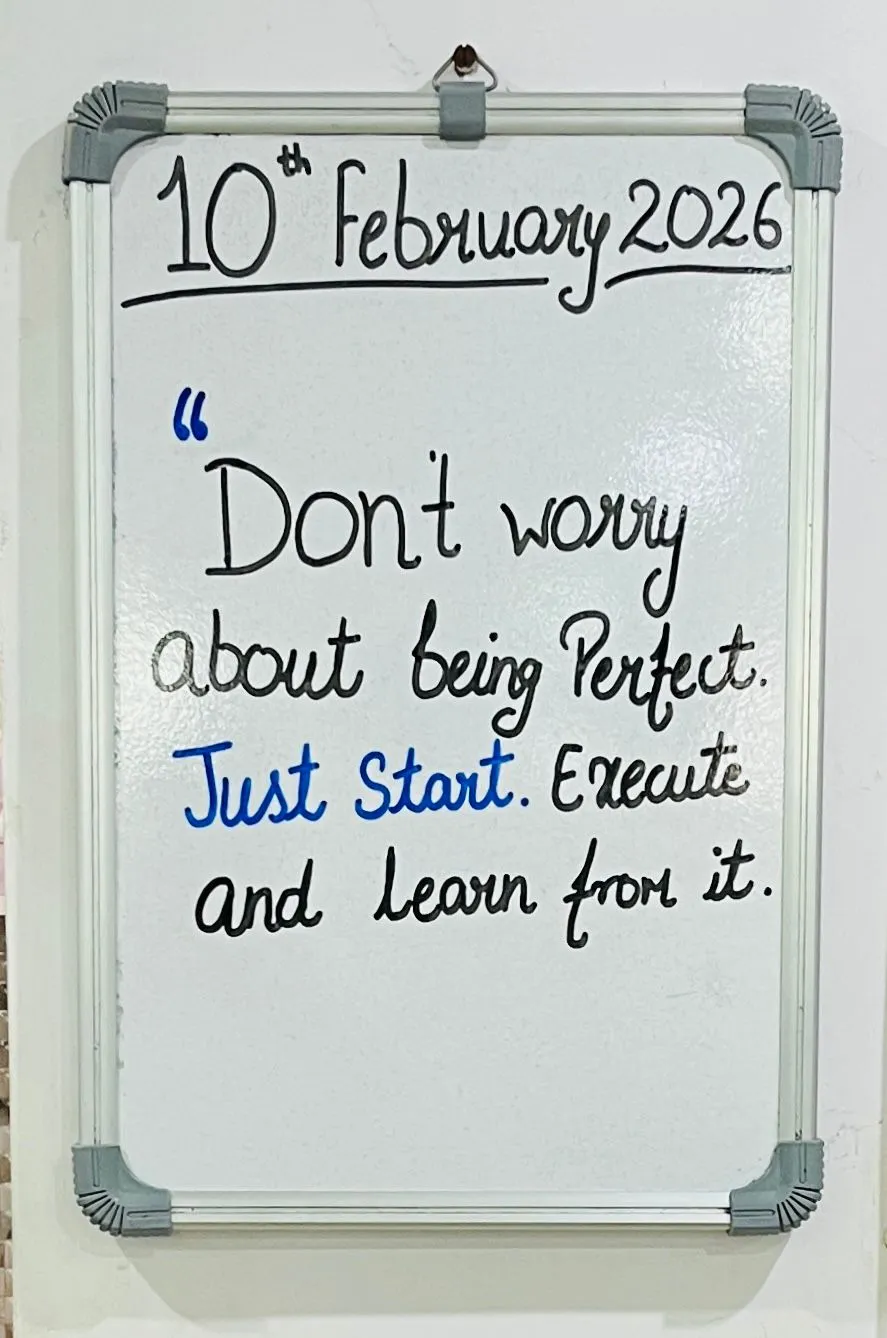 10th February 2026
“
Don't worry
about being Perfect.
Just Start. Execute
and learn from it.